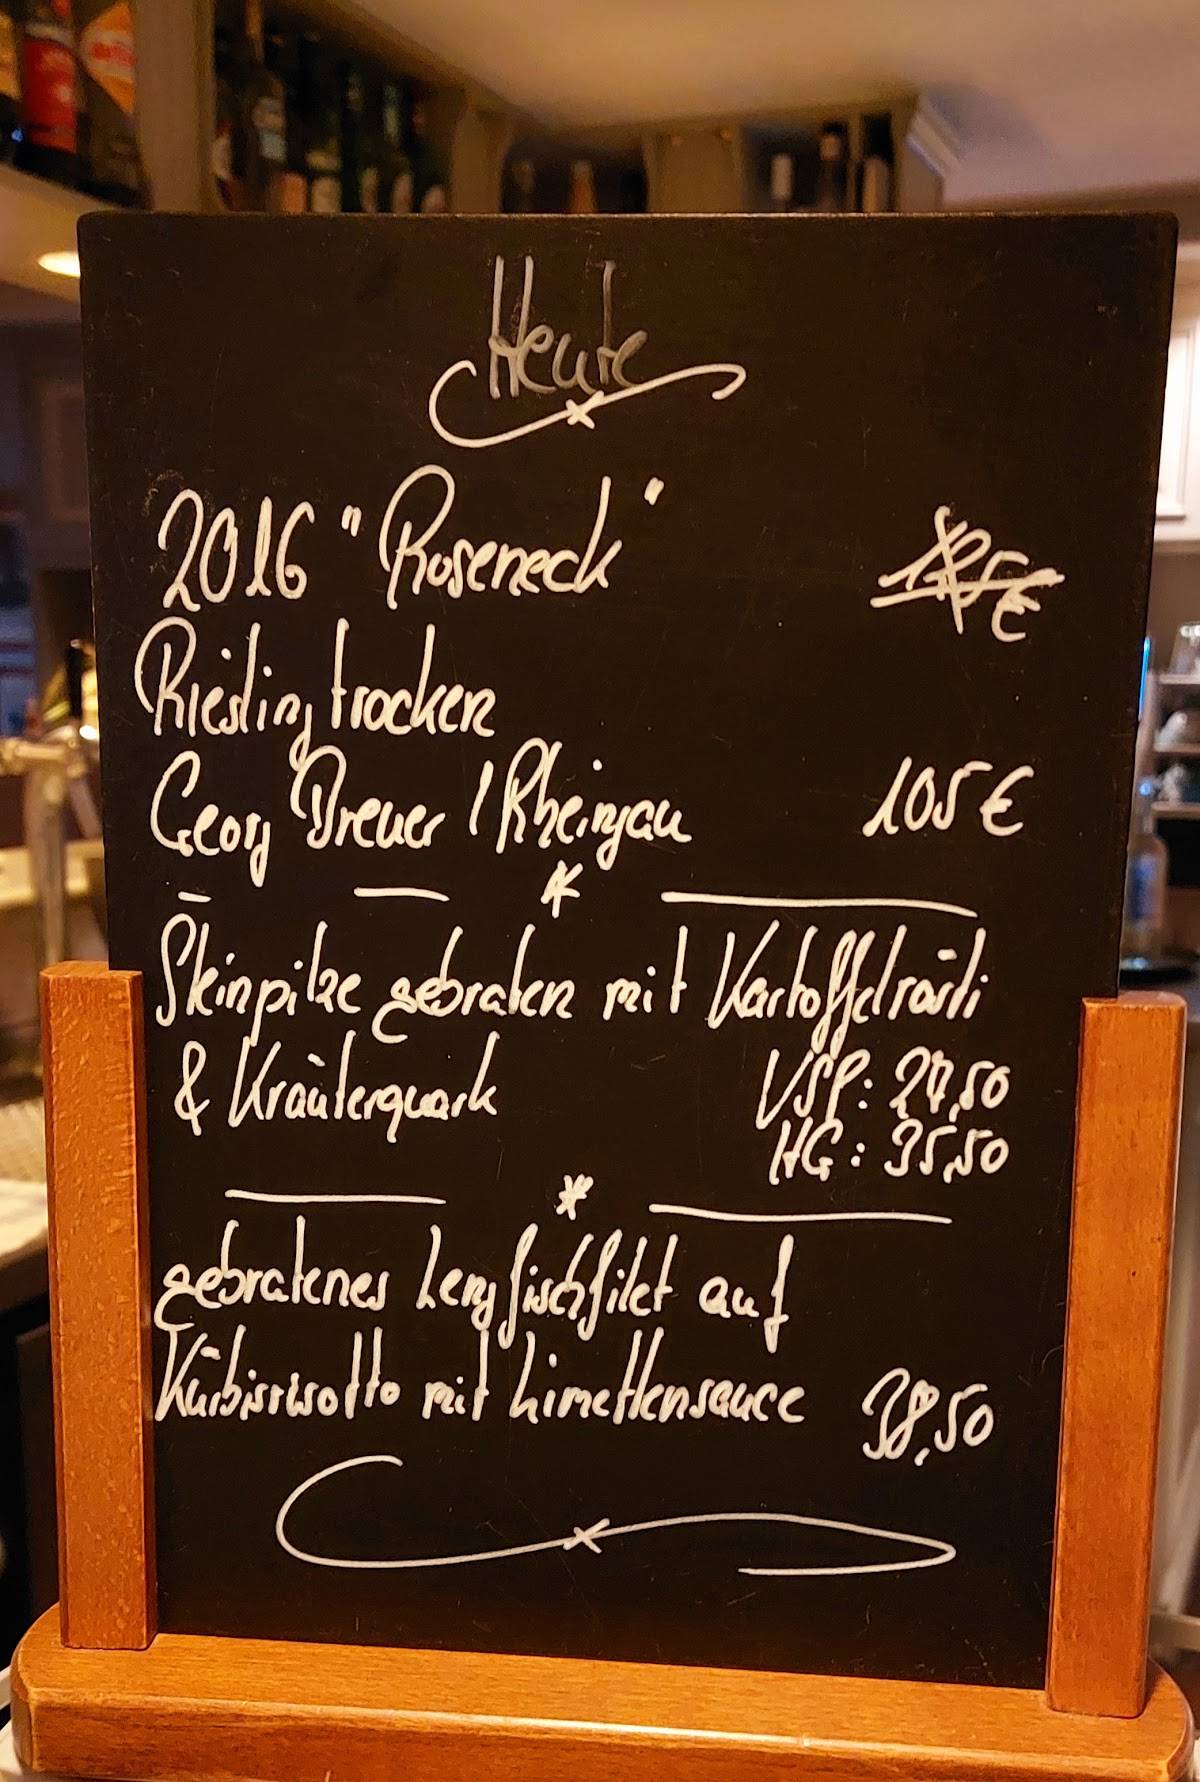 Heute
2016 "Roseneck"
125€
Riesling trocken
Georg Breuer / Rheingau 105€
Steinpilze gebraten mit Kartoffelrösti
& Kräuterquark VSP: 27,50
HG: 35,50
gebratenes Lengfischfilet auf
Kürbisrisotto mit Limettensauce 38,50